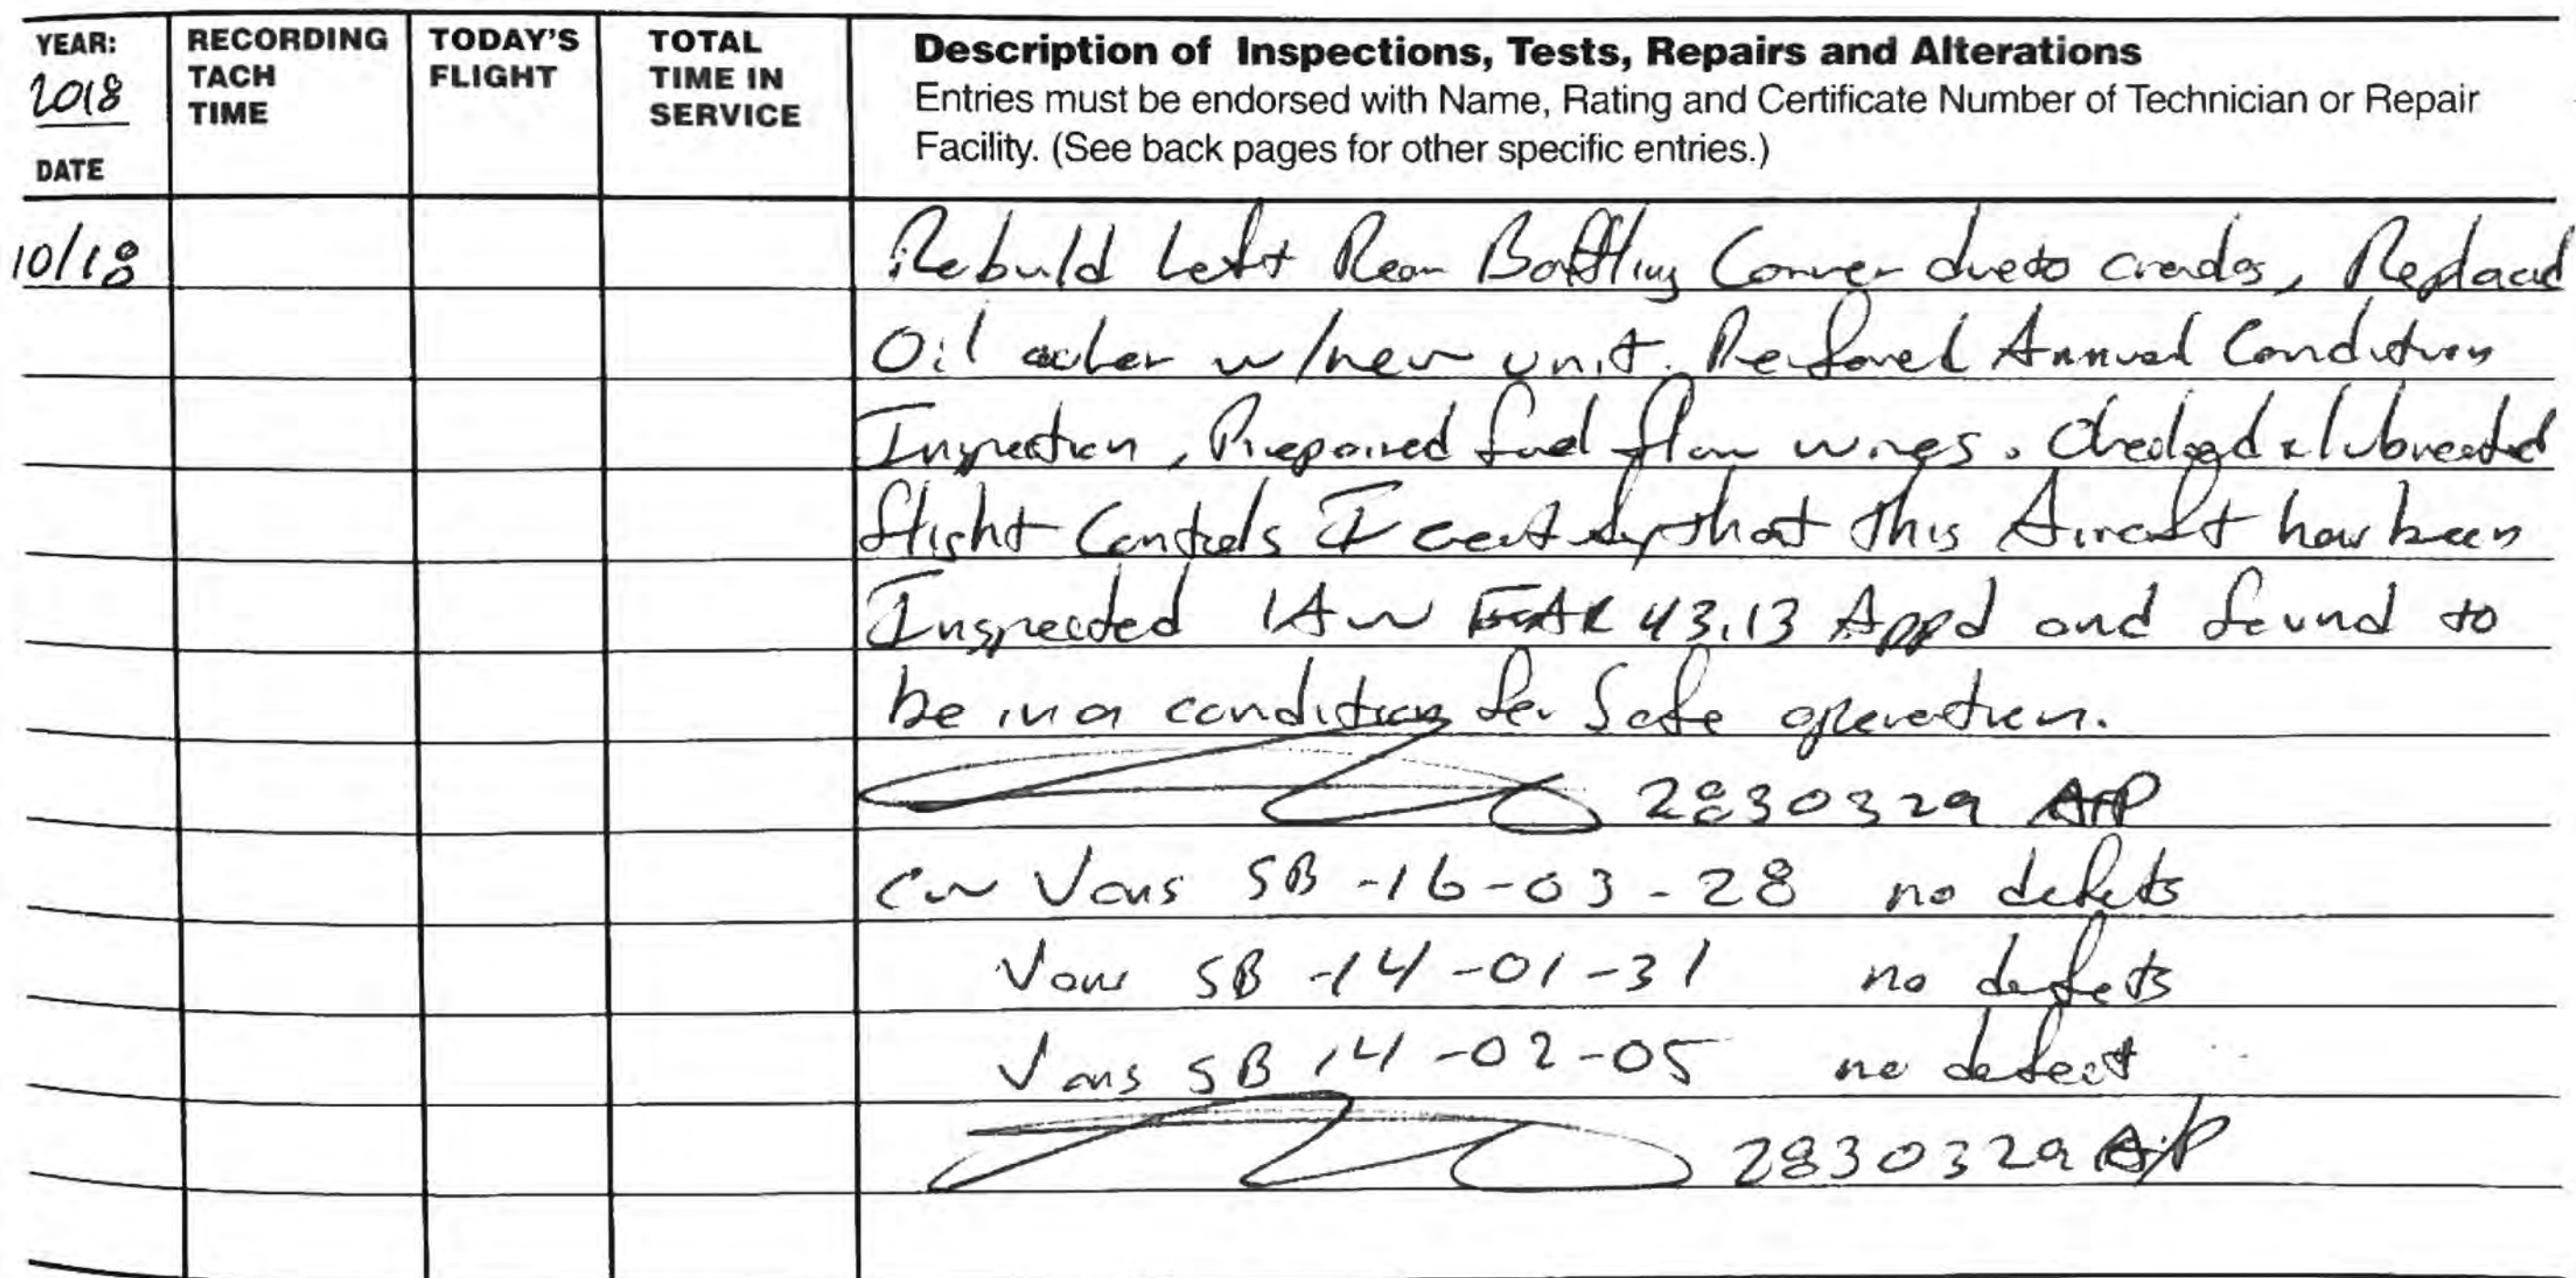 YEAR: RECORDING TODAY'S TOTAL Description of Inspections, Tests, Repairs and Alterations
2018 TACH FLIGHT TIME IN Entries must be endorsed with Name, Rating and Certificate Number of Technician or Repair
TIME SERVICE Facility. (See back pages for other specific entries.)
DATE
10/18 Rebuild Left Rear Baffling Corner due to cracks, Replaced
Oil cooler w/new unit. Perfomed Annual Condition
Inspection, Repaired fuel flow wires. Checked & lubricated
flight Controls I certify that this Aircraft has been
Inspected IAW FAR 43.13 App d and found to
be in a condition for Safe operation.
2830329 A+P
CW Vans SB -16-03-28 no defects
Vans SB -14-01-31 no defects
Vans SB 14-02-05 no defect
2830329 A/P